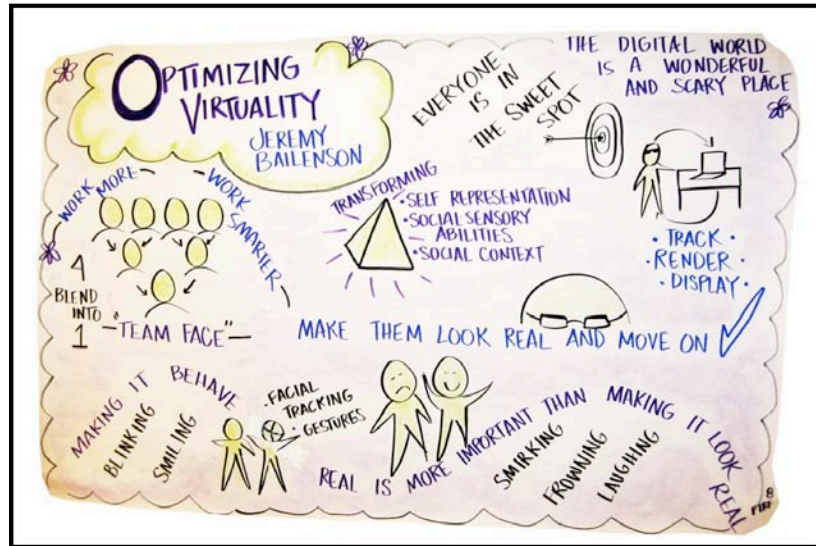 OPTIMIZING
VIRTUALITY
JEREMY
BAILENSON
EVERYONE
IS IN
THE SWEET
SPOT
THE DIGITAL WORLD
IS A WONDERFUL
AND SCARY PLACE
WORK MORE — WORK SMARTER —
4
BLEND
INTO
1
"TEAM FACE"—
TRANSFORMING
• SELF REPRESENTATION
• SOCIAL SENSORY
ABILITIES
• SOCIAL CONTEXT
• TRACK •
• RENDER •
• DISPLAY •
MAKE THEM LOOK REAL AND MOVE ON
MAKING IT BEHAVE
BLINKING
SMILING
• FACIAL
TRACKING
• GESTURES
REAL IS MORE IMPORTANT THAN MAKING IT LOOK REAL
SMIRKING
FROWNING
LAUGHING